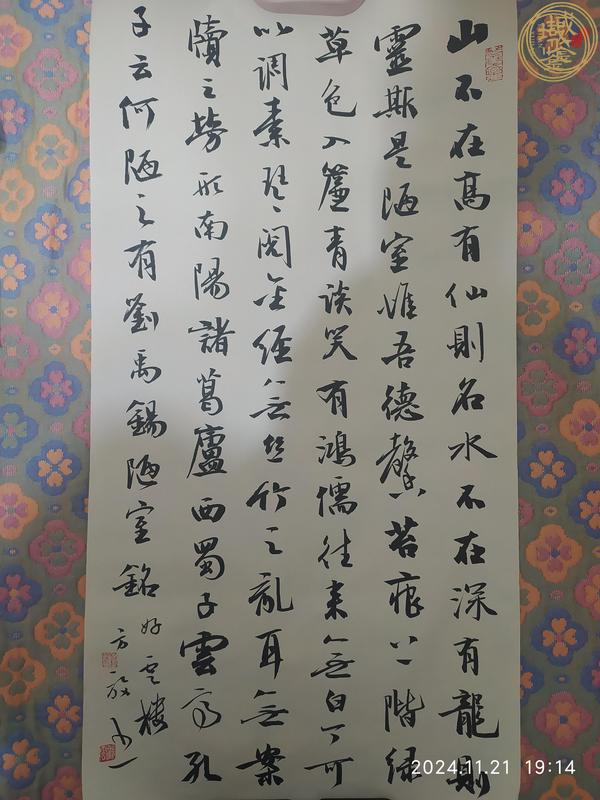 山不在高有仙則名水不在深有龍則
靈斯是陋室惟吾德馨苔痕上階绿
草色入簾青談笑有鴻儒往来無白丁可
以調素琴閱金經無丝竹之亂耳無案
牘之勞形南陽諸葛廬西蜀子雲亭孔
子云何陋之有劉禹錫陋室銘
2024.11.21 19:14